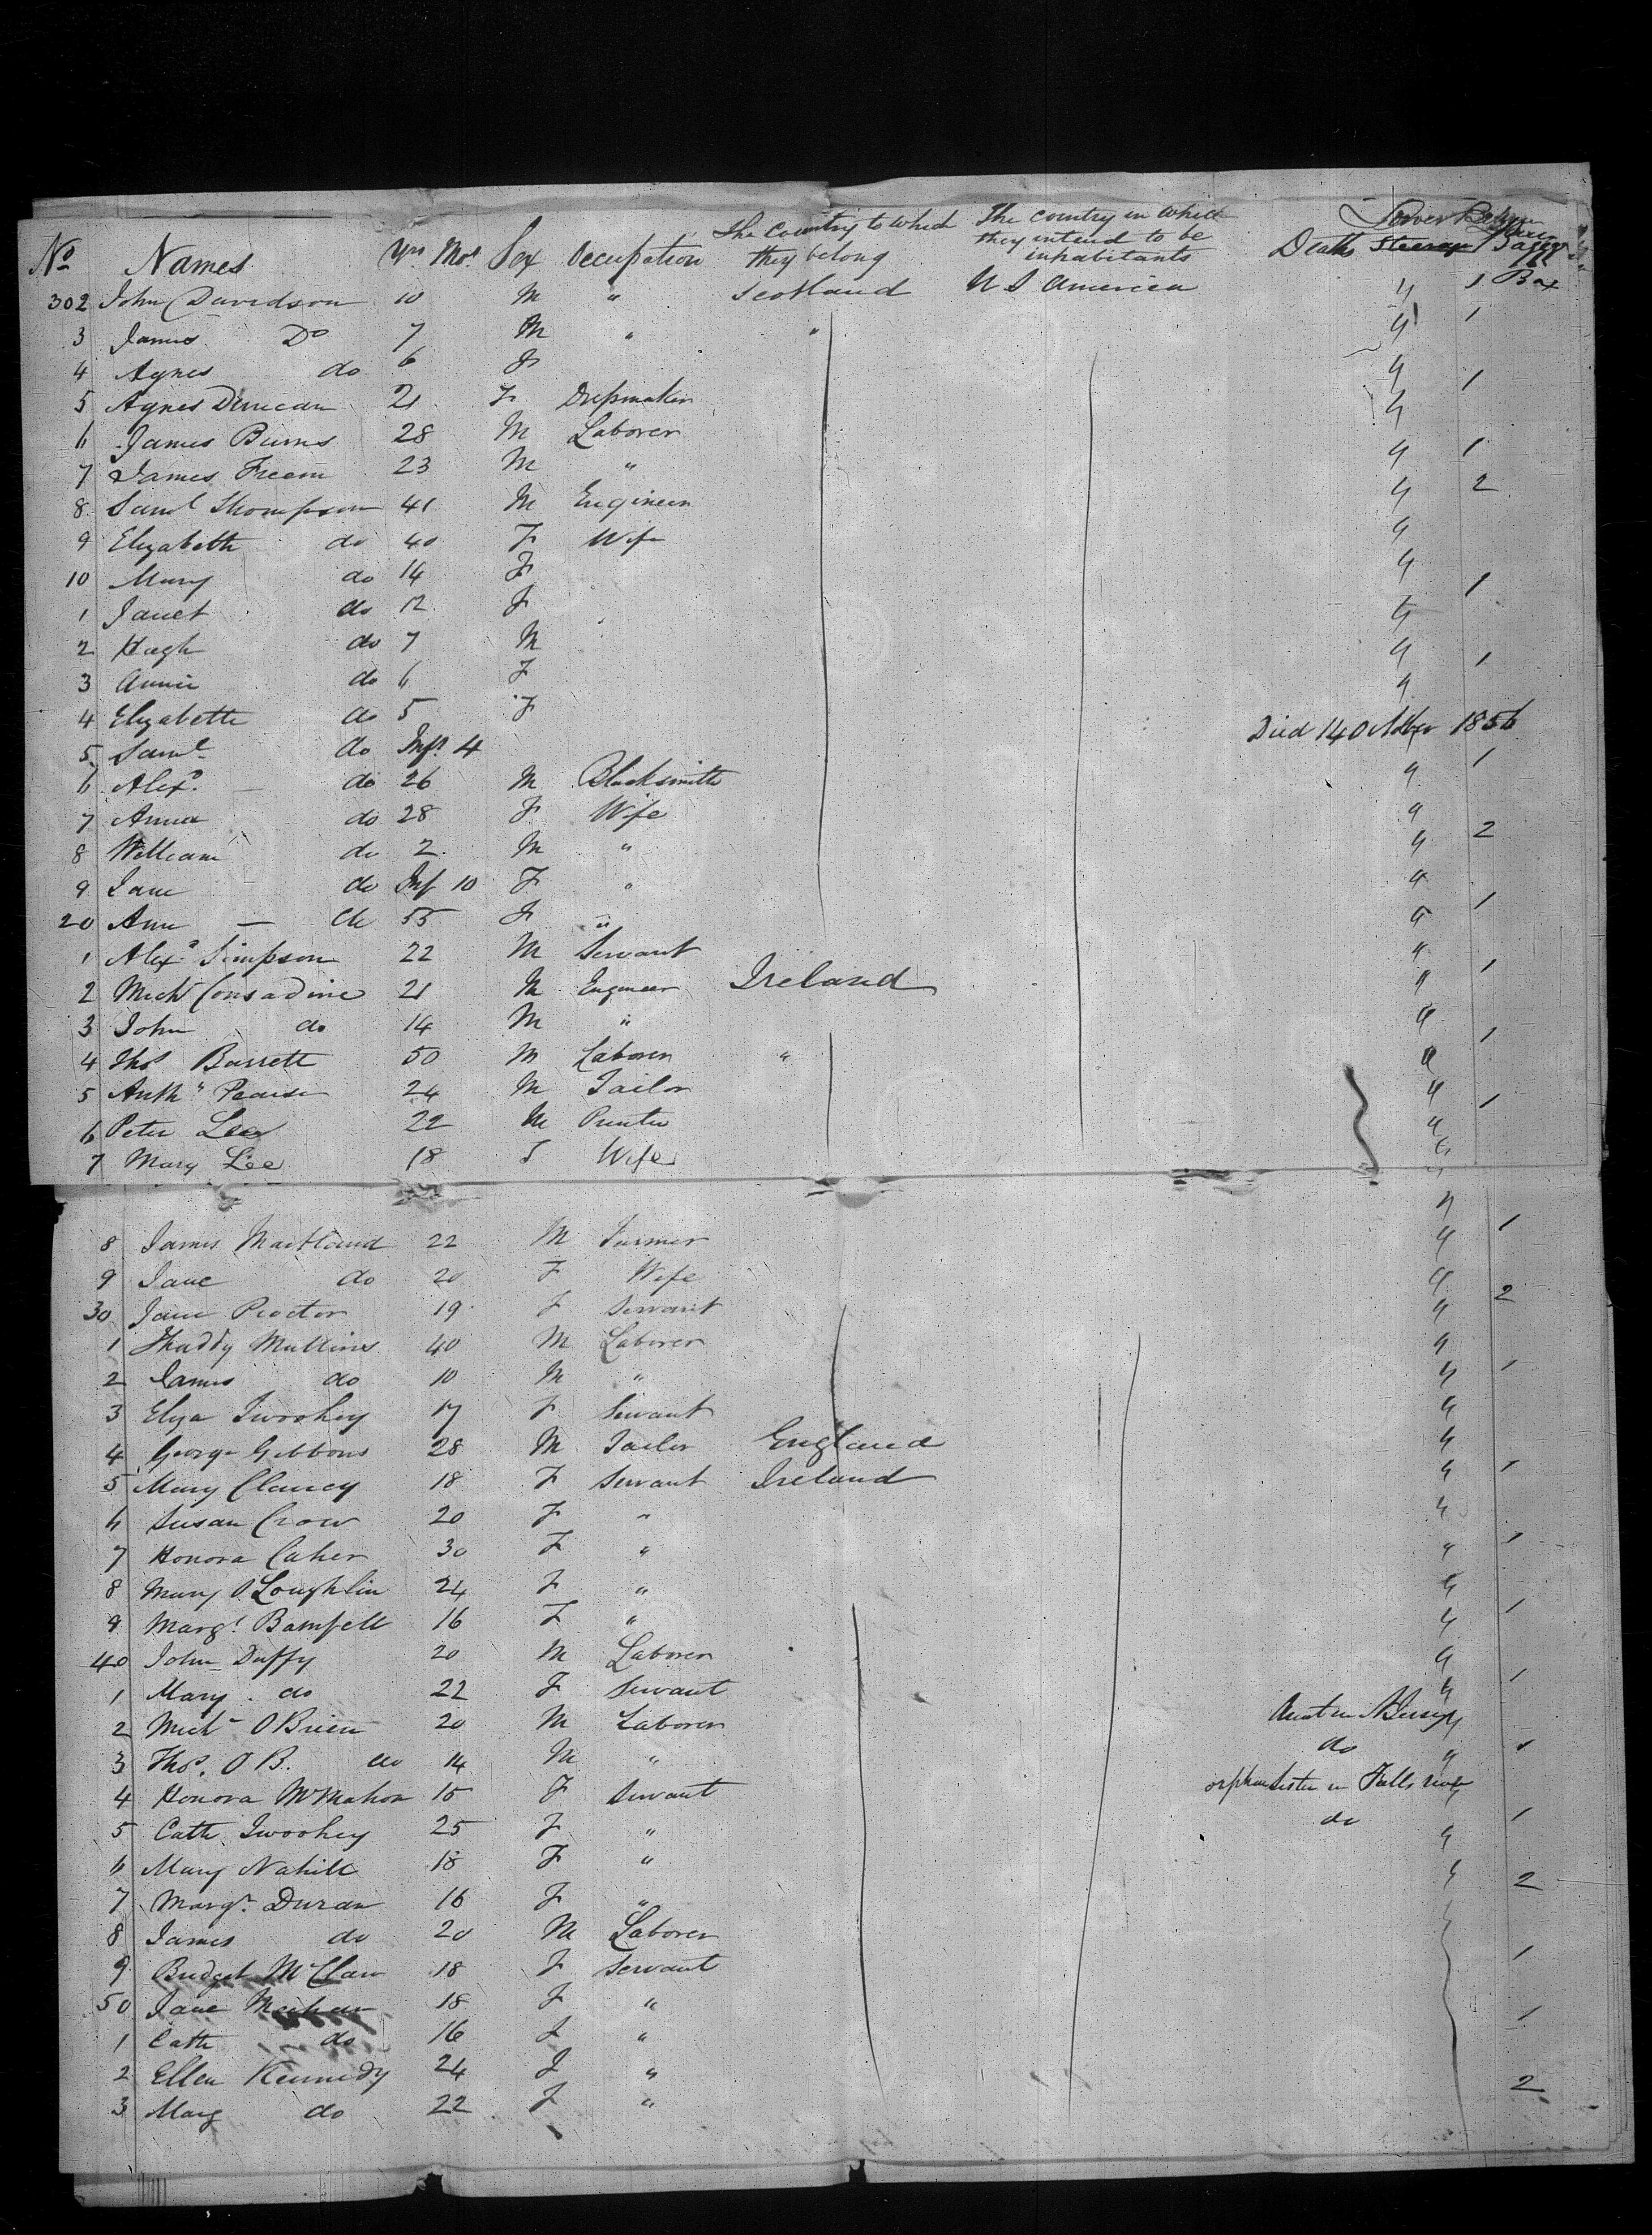 No Names Yrs Mos Sex Occupation The Country to which they belong The country in which they intend to be inhabitants Deaths Steerage
302 John Davidson 10 M " Scotland U S America 4 1 Box
3 James Do 7 M " " 4 1
4 Agnes do 6 F 4
5 Agnes Duncan 21 F Dressmaker 4 1
6 James Burns 28 M Laborer 4
7 James Freem 23 M " 4 1
8 Saml Thompson 41 M Engineer 4 2
9 Elizabeth do 40 F Wife 4
10 Mary do 14 F 4
1 Janet do 12 F 4 1
2 Hugh do 7 M 4
3 Annie do 6 F 4 1
4 Elizabeth do 5 F
5 Saml do Inft 4 Died 14 October 1856
6 Alexr do 26 M Blacksmith 4 1
7 Anna do 28 F Wife 4
8 William do 2 M " 4 2
9 Jane do Inf 10 F " 4
20 Ann — do 55 F " 4 1
1 Alexr Simpson 22 M Servant 4
2 Michl Consadine 21 M Engineer Ireland 4 1
3 John do 14 M " 4
4 Thos Barrett 50 M Laborer " 4 1
5 Anthy Pearse 24 M Tailor 4
6 Peter Lee 22 M Printer 4 1
7 Mary Lee 18 F Wife 4
8 James Maitland 22 M Farmer 4 1
9 Jane do 20 F Wife 4
30 Jane Proctor 19 F Servant 4 2
1 Thaddy Mullins 40 M Laborer 4
2 James do 10 M " 4 1
3 Eliza Twoohey 17 F Servant 4
4 George Gibbons 28 M Tailor England 4
5 Mary Clancy 18 F Servant Ireland 4 1
6 Susan Crow 20 F " 4
7 Honora Caher 30 F " 4 1
8 Mary O'Loughlin 24 F " 4
9 Margt Bampell 16 F " 4 1
40 John Duffy 20 M Laborer 4
1 Mary do 22 F Servant 4 1
2 Michl O Brien 20 M Laborer Aunt in N Jersey
3 Thos. O B. do 14 M " do 4
4 Honora McMahon 15 F Servant orphan sister in Falls river
5 Cath Twoohey 25 F " do 4 1
6 Mary Nahill 18 F " 4
7 Margt Duran 16 F " 2
8 James do 20 M Laborer
9 Bridget McClan 18 F Servant 1
50 Jane 18 F "
1 Cath do 16 F " 1
2 Ellen Kennedy 24 F "
3 Marg do 22 F " 2